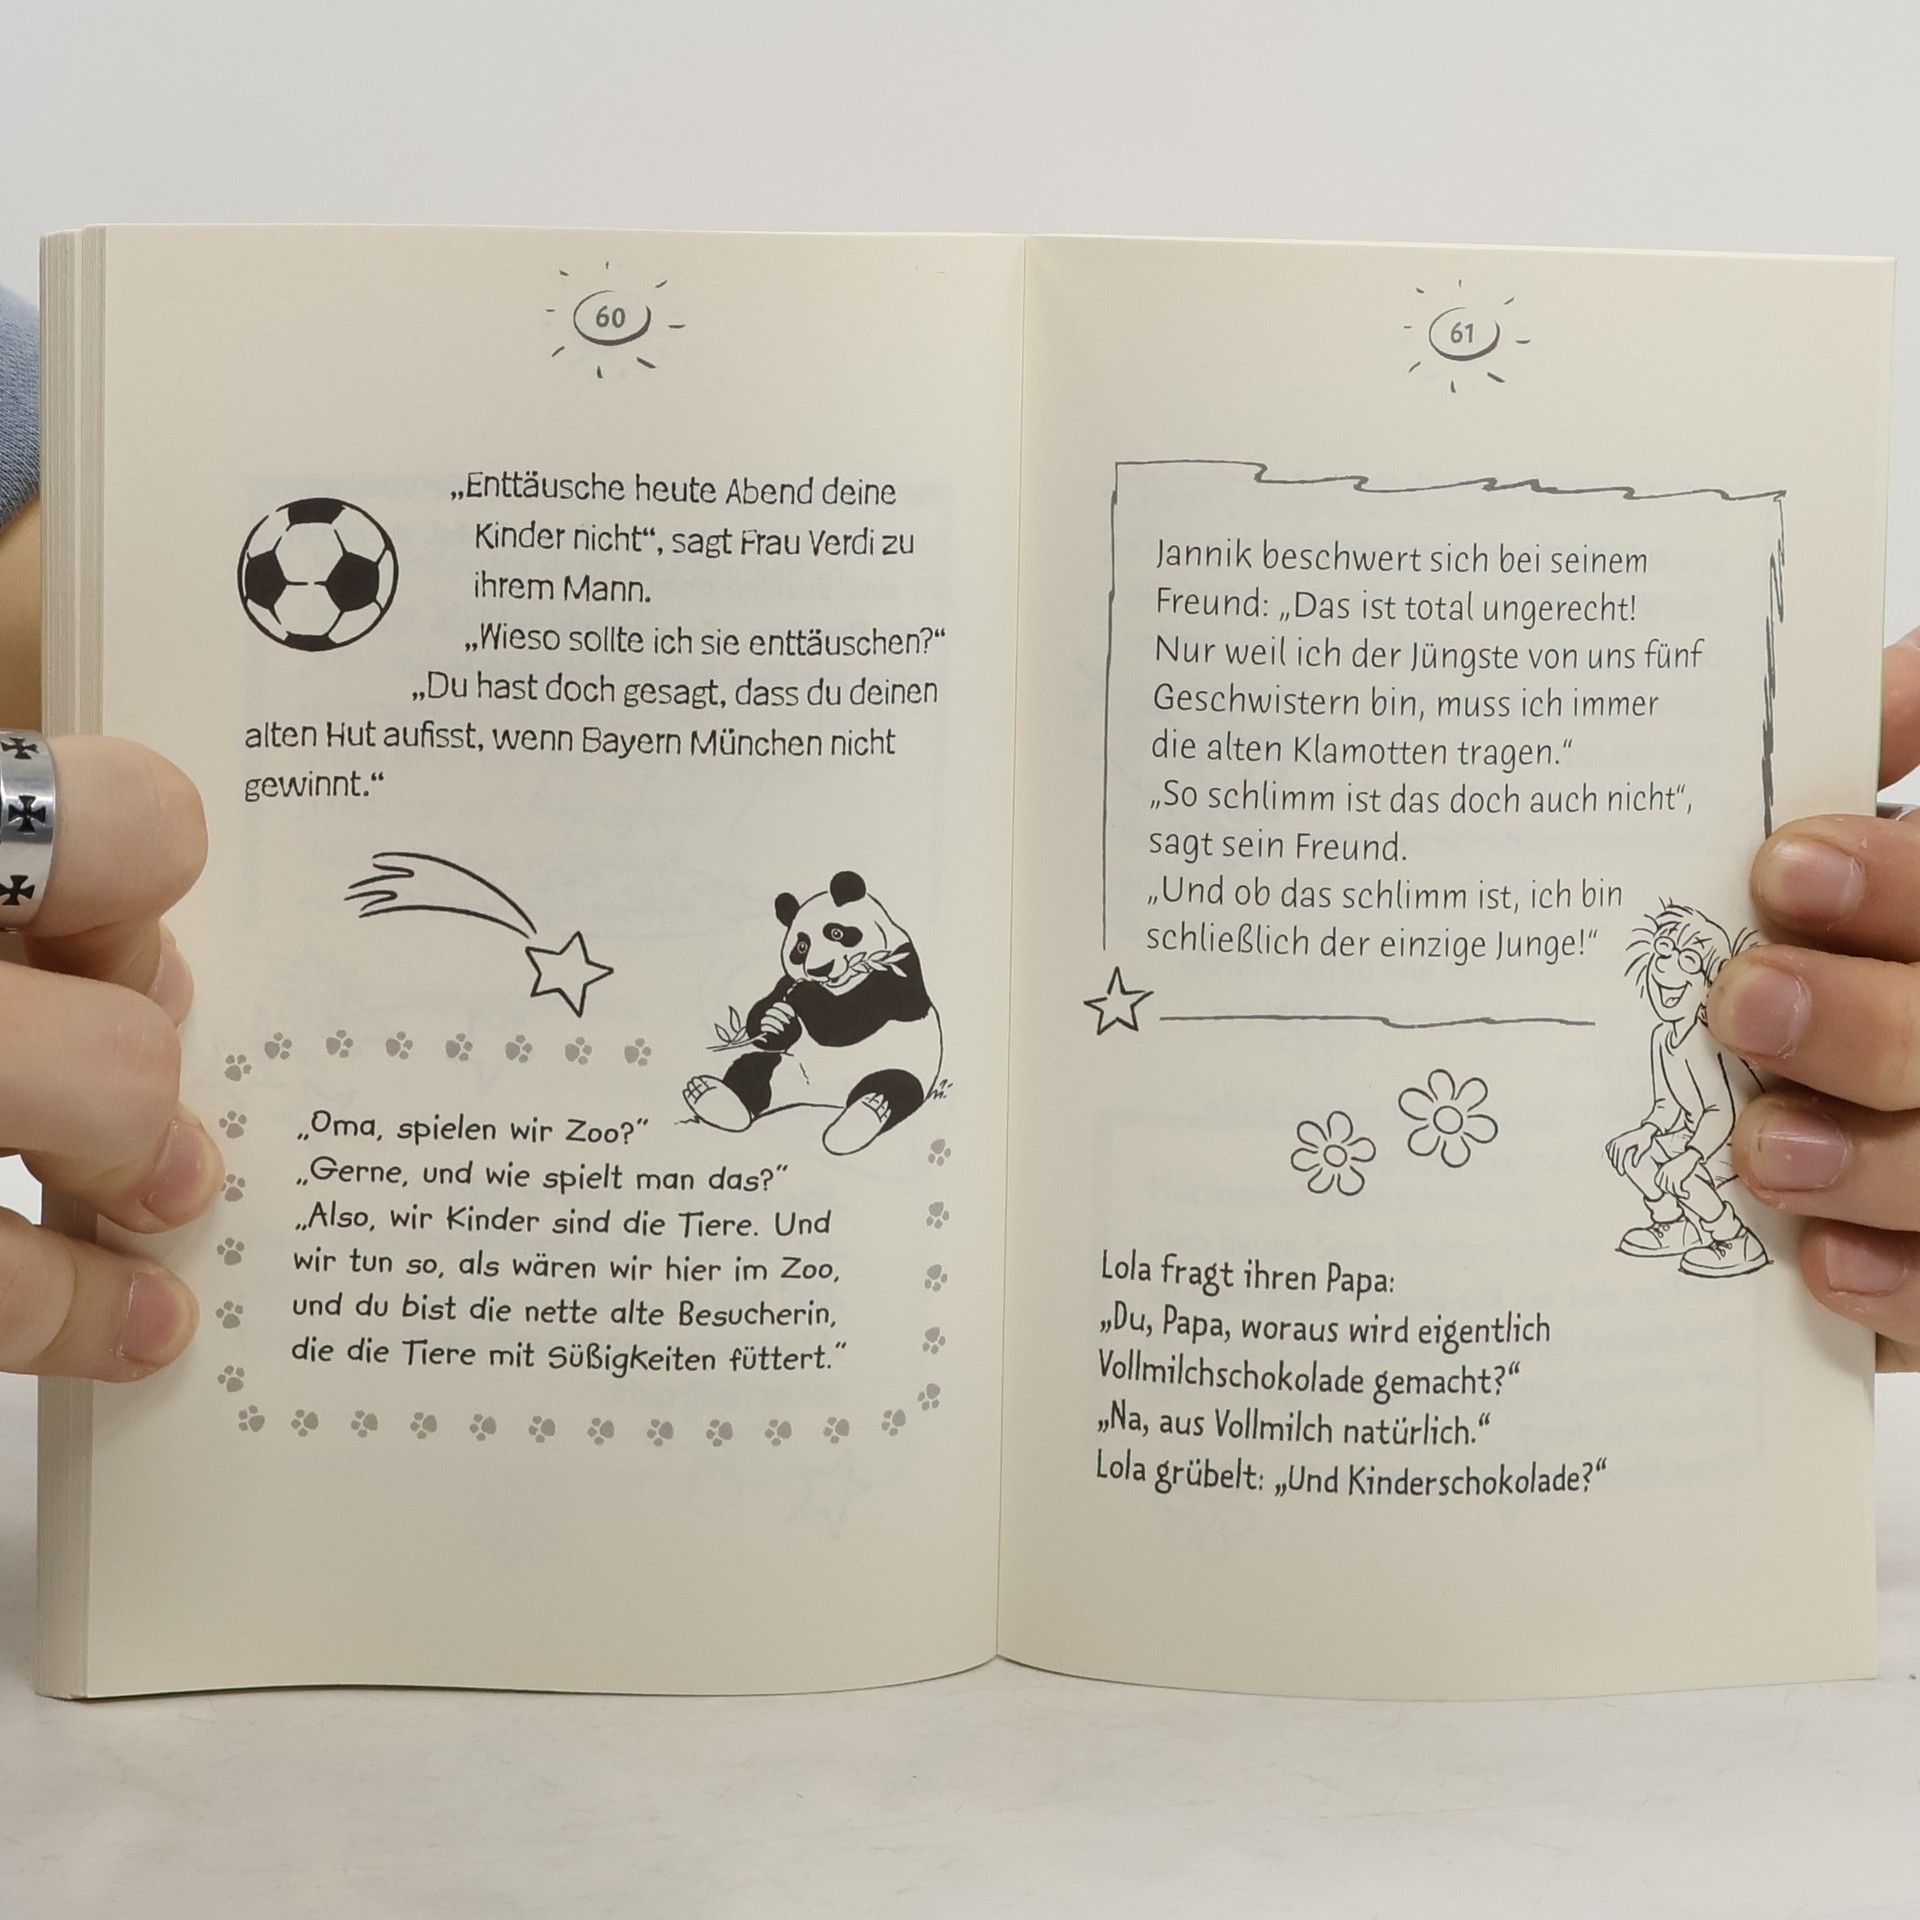 60
„Enttäusche heute Abend deine
Kinder nicht“, sagt Frau Verdi zu
ihrem Mann.
„Wieso sollte ich sie enttäuschen?“
„Du hast doch gesagt, dass du deinen
alten Hut aufisst, wenn Bayern München nicht
gewinnt.“
„Oma, spielen wir Zoo?“
„Gerne, und wie spielt man das?“
„Also, wir Kinder sind die Tiere. Und
wir tun so, als wären wir hier im Zoo,
und du bist die nette alte Besucherin,
die die Tiere mit Süßigkeiten füttert.“
61
Jannik beschwert sich bei seinem
Freund: „Das ist total ungerecht!
Nur weil ich der Jüngste von uns fünf
Geschwistern bin, muss ich immer
die alten Klamotten tragen.“
„So schlimm ist das doch auch nicht“,
sagt sein Freund.
„Und ob das schlimm ist, ich bin
schließlich der einzige Junge!“
Lola fragt ihren Papa:
„Du, Papa, woraus wird eigentlich
Vollmilchschokolade gemacht?“
„Na, aus Vollmilch natürlich.“
Lola grübelt: „Und Kinderschokolade?“